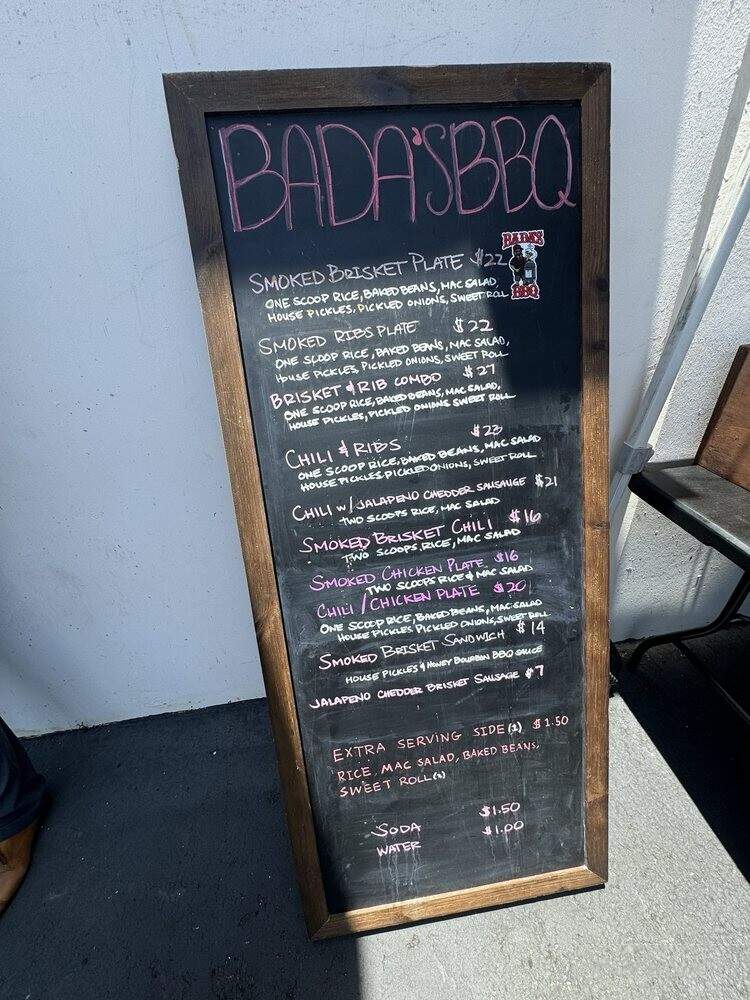 BADA'S BBQ
BADA'S
BBQ
SMOKED BRISKET PLATE $22
ONE SCOOP RICE, BAKED BEANS, MAC SALAD,
HOUSE PICKLES, PICKLED ONIONS, SWEET ROLL
SMOKED RIBS PLATE $22
ONE SCOOP RICE, BAKED BEANS, MAC SALAD,
HOUSE PICKLES, PICKLED ONIONS, SWEET ROLL
BRISKET & RIB COMBO $27
ONE SCOOP RICE, BAKED BEANS, MAC SALAD,
HOUSE PICKLES, PICKLED ONIONS SWEET ROLL
CHILI & RIBS $23
ONE SCOOP RICE, BAKED BEANS, MAC SALAD
HOUSE PICKLES, PICKLED ONIONS, SWEET ROLL
CHILI W/ JALAPENO CHEDDER SAUSAUGE $21
TWO SCOOPS RICE, MAC SALAD
SMOKED BRISKET CHILI $16
TWO SCOOPS RICE, MAC SALAD
SMOKED CHICKEN PLATE $16
TWO SCOOPS RICE & MAC SALAD
CHILI / CHICKEN PLATE $20
ONE SCOOP RICE, BAKED BEANS, MAC SALAD
HOUSE PICKLES PICKLED ONIONS, SWEET ROLL
SMOKED BRISKET SANDWICH $14
HOUSE PICKLES & HONEY BOURBON BBQ SAUCE
JALAPENO CHEDDER BRISKET SAUSAGE $7
EXTRA SERVING SIDE (1) $1.50
RICE, MAC SALAD, BAKED BEANS,
SWEET ROLL
SODA $1.50
WATER $1.00